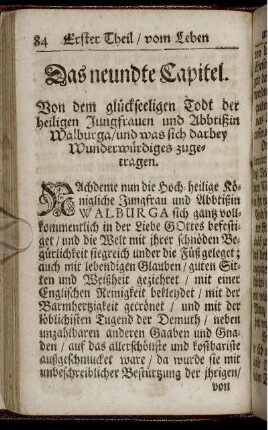 84 Erster Theil / vom Leben
Das neundte Capitel.
Von dem glückseeligen Todt der
heiligen Jungfrauen und Abbtißin
Walburga / und was sich darbey
Wunderwürdiges zuge-
tragen.
NAchdeme nun die Hoch-heilige Kö-
nigliche Jungfrau und Abbtißin
WALBURGA sich gantz voll-
kommentlich in der Liebe GOttes befesti-
get / und die Welt mit ihrer schnöden Be-
gürlichkeit siegreich under die Füß geleget;
auch mit lebendigen Glauben / guten Sit-
ten und Weißheit geziehret / mit einer
Englischen Reinigkeit bekleydet / mit der
Barmhertzigkeit gecrönet / und mit der
löblichisten Tugend der Demuth / neben
unzahlbaren anderen Gaaben und Gna-
den / auf das allerschönste und kostbariste
außgeschmucket ware / da wurde sie mit
unbeschreiblicher Bestürtzung der ihrigen /
von